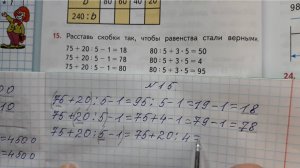 b 80 60 40 20
240 : b
15. Расставь скобки так, чтобы равенства стали верными.
75 + 20 : 5 − 1 = 18 80 : 5 + 3 · 5 = 50
75 + 20 : 5 − 1 = 78 80 : 5 + 3 · 5 =
75 + 20 : 5 − 1 = 80 80 : 5 + 3 · 5 = 95
24.
№15
(75+20):5-1=95:5-1=19-1=18
75+20:5-1=75+4-1=79-1=78
75+20:(5-1)=75+20:4=